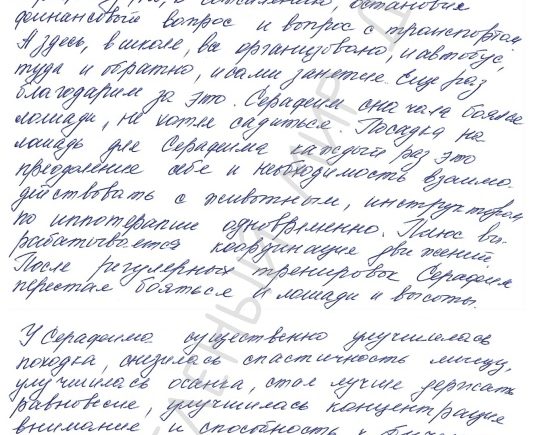 остановил
финансовый вопрос и вопрос с транспортом.
А здесь, в школе, всё организовано, и автобус,
туда и обратно, и сами занятия. Еще раз
благодарим за это. Серафим сначала боялся
лошади, не хотел садиться. Посадка на
лошадь для Серафима каждый раз это
преодоление себя и необходимость взаимо-
действовать с животным, инструктором
по иппотерапии одновременно. Плюс вы-
рабатывается координация движений.
После регулярных тренировок Серафим
перестал бояться и лошади и высоты.
У Серафима существенно улучшилась
походка, снизилась спастичность мышц,
улучшилась осанка, стал лучше держать
равновесие, улучшилась концентрация
внимания и способность к